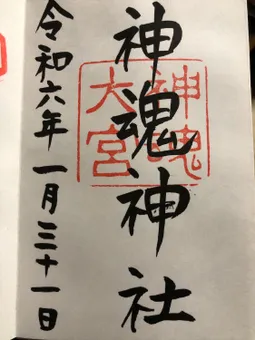 神魂神社
神魂
大宮
令和六年一月三十一日